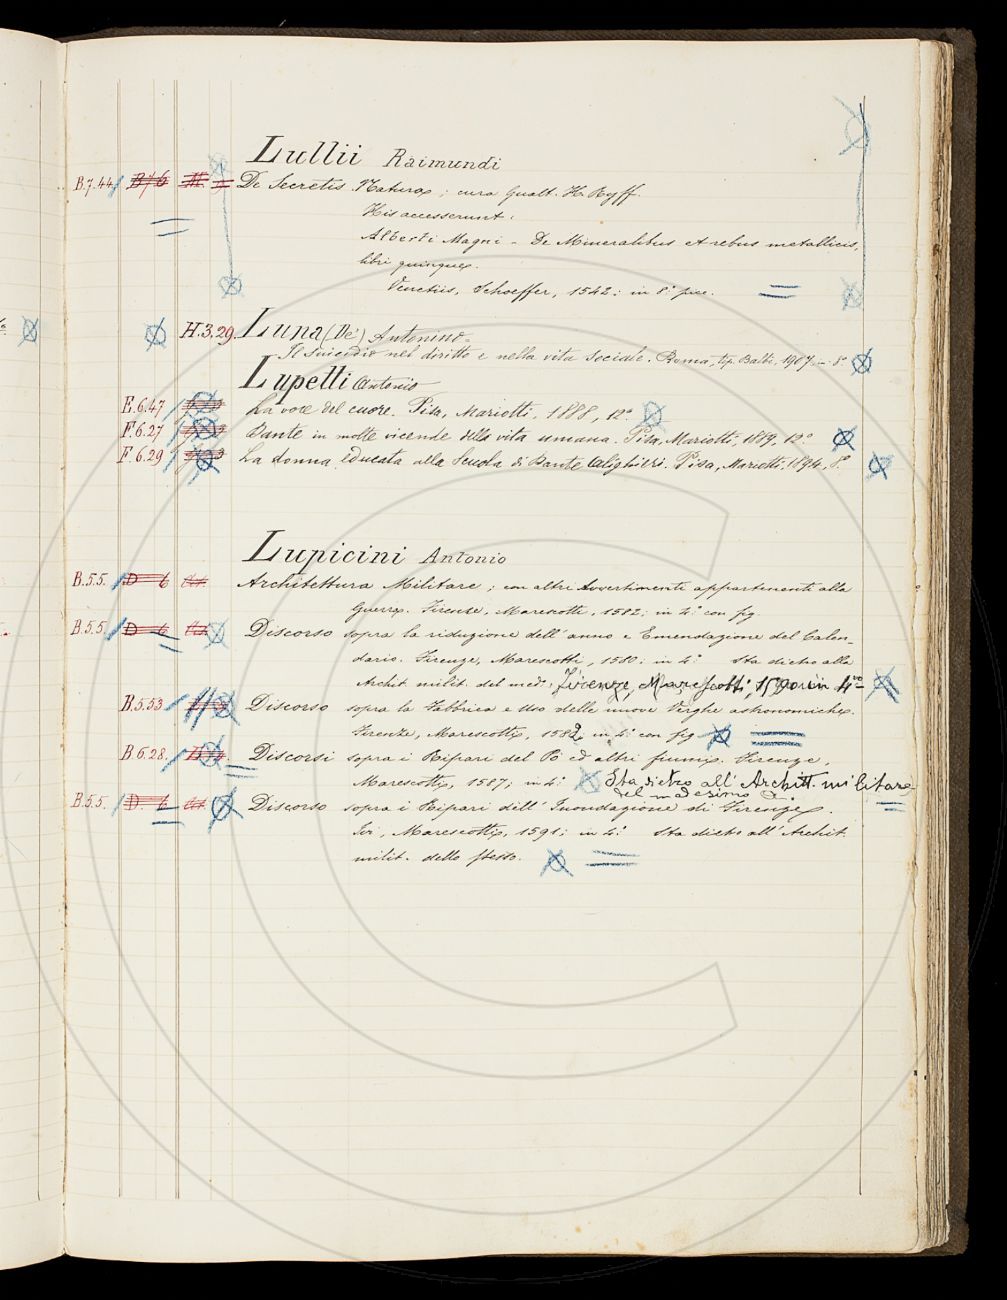 Lullii Raimundi
B.7.44 De Secretis Naturæ; cura Gualt. H. Ryff.
His accesserunt:
Alberti Magni - De Mineralibus et rebus metallicis,
libri quinque.
Venetiis, Schoeffer, 1542; in 8.° picc.
H.3.29. Luna (De') Antonino
Il Suicidio nel diritto e nella vita sociale. Roma, tip. Balbi, 1907 - in 8.°
Lupelli Antonio
F.6.47 La voce del cuore. Pisa, Mariotti, 1888, 12.°
F.6.27 Dante in molte vicende della vita umana. Pisa, Mariotti, 1889, 12.°
F.6.29 La donna educata alla Scuola di Dante Alighieri. Pisa, Mariotti, 1894, 8.°
Lupicini Antonio
B.5.5. D 6 Architettura Militare; con altri Avvertimenti appartenenti alla
Guerra. Firenze, Marescotti, 1582; in 4.° con fig.
B.5.5 D 6 Discorso sopra la riduzione dell'anno e Emendazione del Calen-
dario. Firenze, Marescotti, 1580; in 4.° Sta dietro alla
Archit. milit. del med.° Firenze, Marescotti, in 4°
B.5.53 Discorso sopra la Fabbrica e Uso delle nuove Verghe astronomiche.
Firenze, Marescotti, 1582, in 4.° con fig.
B.6.28. Discorsi sopra i Ripari del Po ed altri fiumi. Firenze,
Marescotti, 1587; in 4.° Sta dietro all'Archit. militare
del medesimo
B.5.5. D. 6 Discorso sopra i Ripari dell'Inondazione di Firenze.
Ivi, Marescotti, 1591; in 4.° Sta dietro all'Archit.
milit. dello stesso.